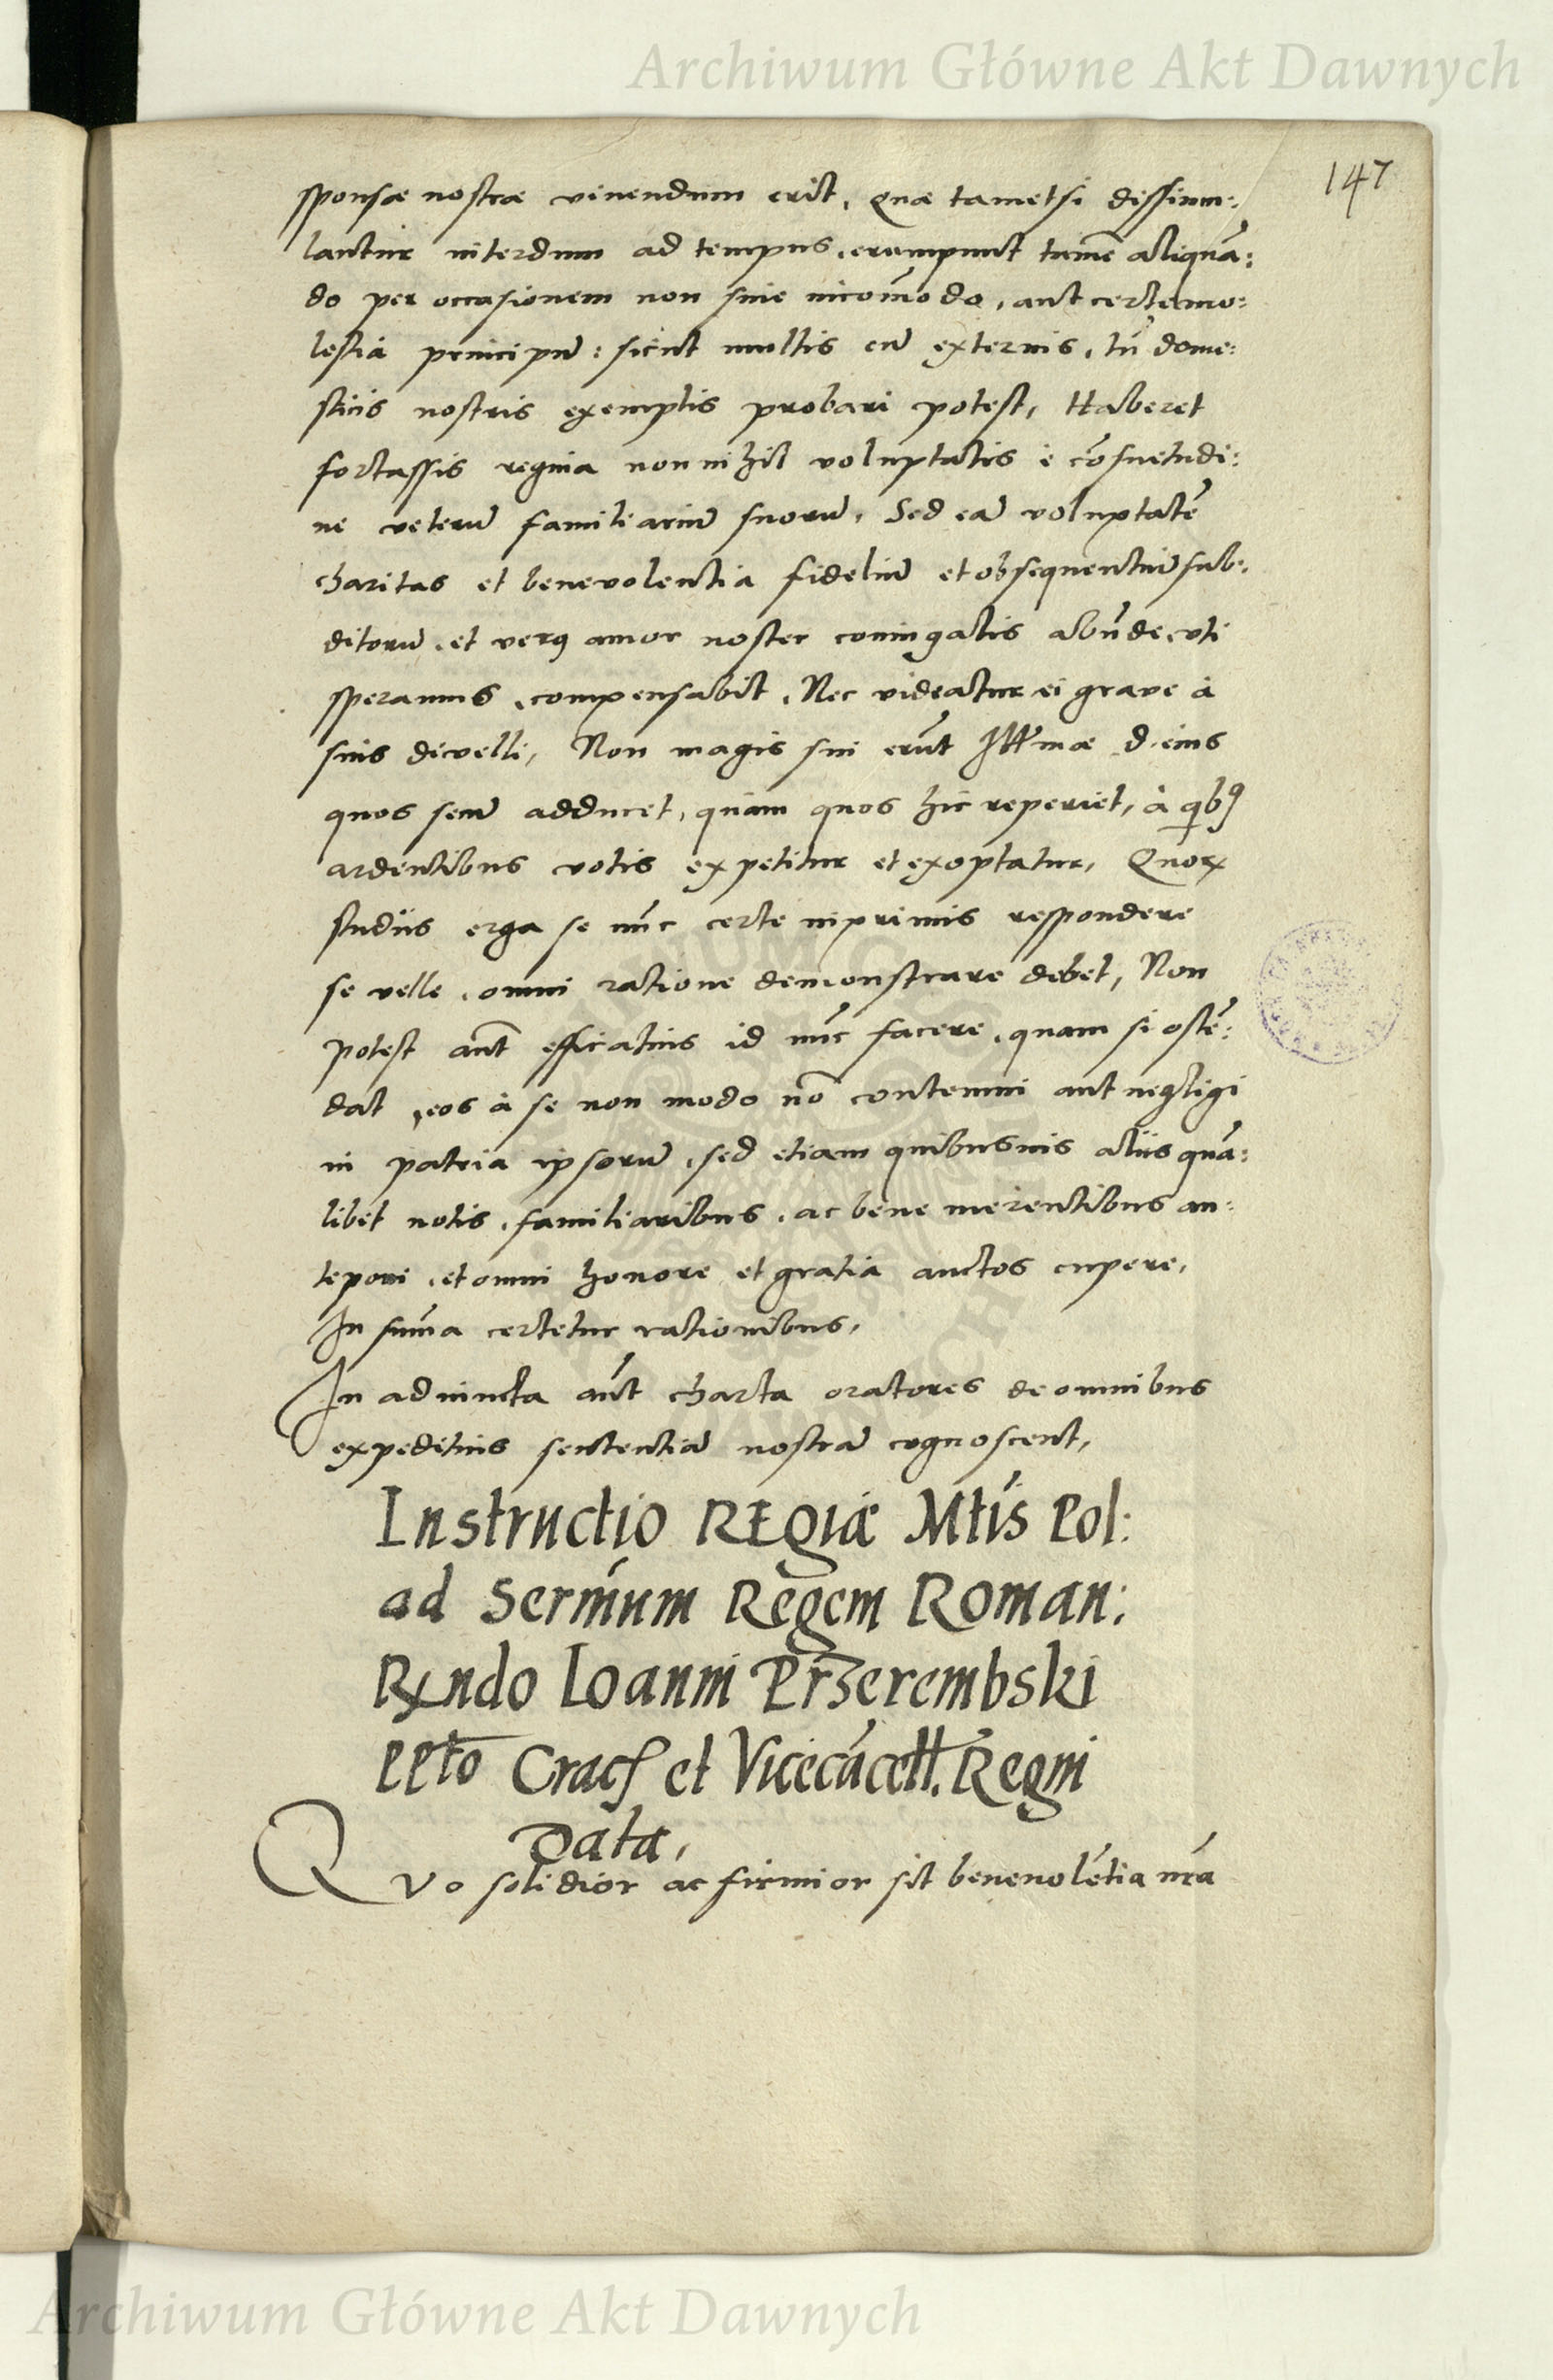 Archiwum Główne Akt Dawnych
147
sponsæ nostræ vivendum erit, Quæ tametsi dissimu:
lantur interdum ad tempus, erumpunt tamē aliquā:
do per occasionem non sine incōmodo, aut certe mo:
lestia principū: sicut multis cū externis, tū dome:
sticis nostris exemplis probari potest, Haberet
fortassis regina nonnihil voluptatis è cōsuetudi:
ne veterū familiariū suorū, Sed eā voluptatē
charitas et benevolentia fideliū et obsequentiū sub:
ditorū, et verꝯ amor noster coniugalis abūde, uti
speramus, compensabit, Nec videatur ei grave à
suis divelli, Non magis sui erūt Illmæ d. eius
quos secū adducet, quàm quos hic reperiet, à qibꝯ
ardentibus votis expetitur et exoptatur, Quoꝝ
studiis erga se nūc certe inprimis respondere
se velle, omni ratione demonstrare debet, Non
potest aūt efficatius id nūc facere, quam si ostē:
dat, eos à se non modo nō contemni aut negligi
in patria ipsorū, sed etiam quibusvis aliis quā:
libet notis, familiaribus, ac bene merentibus an:
teponi, et omni honore et gratia auctos cupere,
In sum̄a certetur rationibus,
In adiuncta aūt charta oratores de omnibus
expeditius sententiā nostrā cognoscent,
Instructio REgiæ Mtis Pol:
ad Sermum Regem Roman:
Rndo Ioanni Przerembski
PPto Crac et Vicecācell. Regni
Data,
QVo solidior ac firmior sit benevolētia nr̄a
Archiwum Główne Akt Dawnych